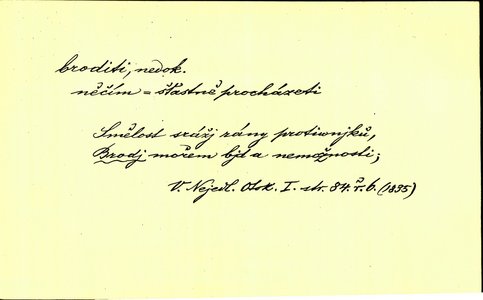 broditi, nedok.
něčím = šťastně procházeti
Smělost srážj rány protiwnjků,
Brodj mořem běd a nemožnosti;
V. Nejedl. Otok. I. str. 84. ř. 6. (1835)